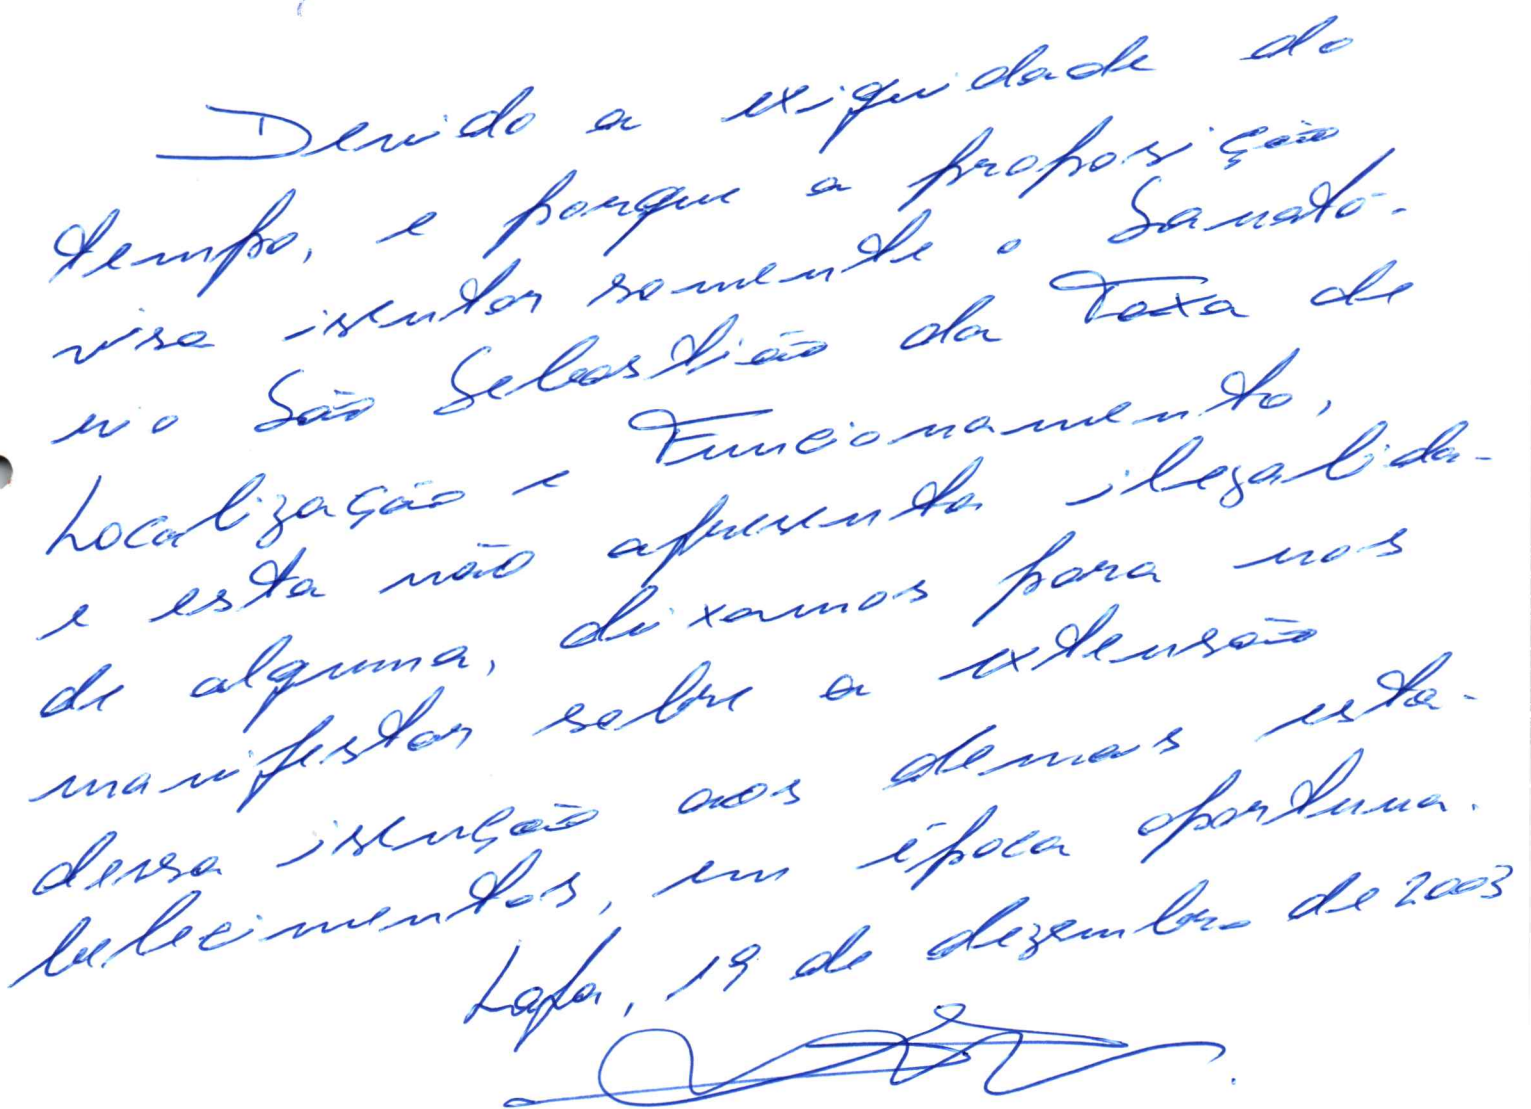 Devido a exiguidade do
tempo, e porque a proposição
visa isentar somente o Sanató-
rio São Sebastião da Taxa de
Localização e Funcionamento,
e esta não apresenta ilegalida-
de alguma, deixamos para nos
manifestar sobre a extensão
dessa isenção aos demais esta-
belecimentos, em época oportuna.
Lapa, 19 de dezembro de 2003